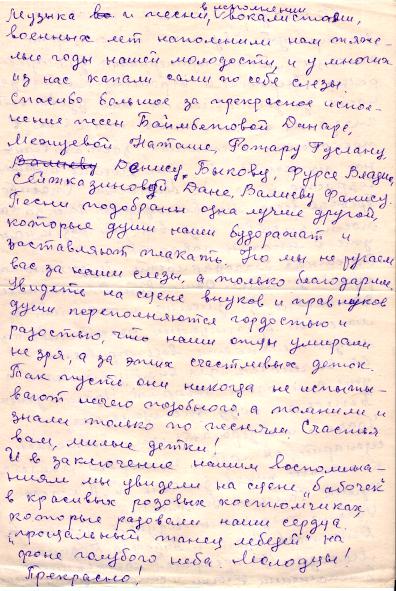 в исполнении
Музыка во и песни, вокалистами,
военных лет напомнили нам тяже-
лые годы нашей молодости, и у многих
из нас капали сами по себе слезы.
Спасибо большое за прекрасное испол-
нение песен Баймбетовой Динаре,
Межуевой Наташе, Ротару Руслану,
Валиеву Денису, Быкову, Фурсе Владис,
Сейтказиновой Дане, Валиеву Фанису.
Песни подобраны одна лучше другой,
которые души наши будоражат и
заставляют плакать. Но мы не ругаем
вас за наши слезы, а только благодарим.
Увидеть на сцене внуков и правнуков
души переполняются гордостью и
радостью, что наши отцы умирали
не зря, а за этих счастливых деток.
Так пусть они никогда не испыты-
вают ничего подобного, а помнили и
знали только по песням. Счастья
вам, милые детки!
И в заключение нашим воспомина-
ниям мы увидели на сцене „бабочек"
в красивых розовых костюмчиках,
которые радовали наши сердца,
„прощальный танец лебедей" на
фоне голубого неба. Молодцы!
Прекрасно!